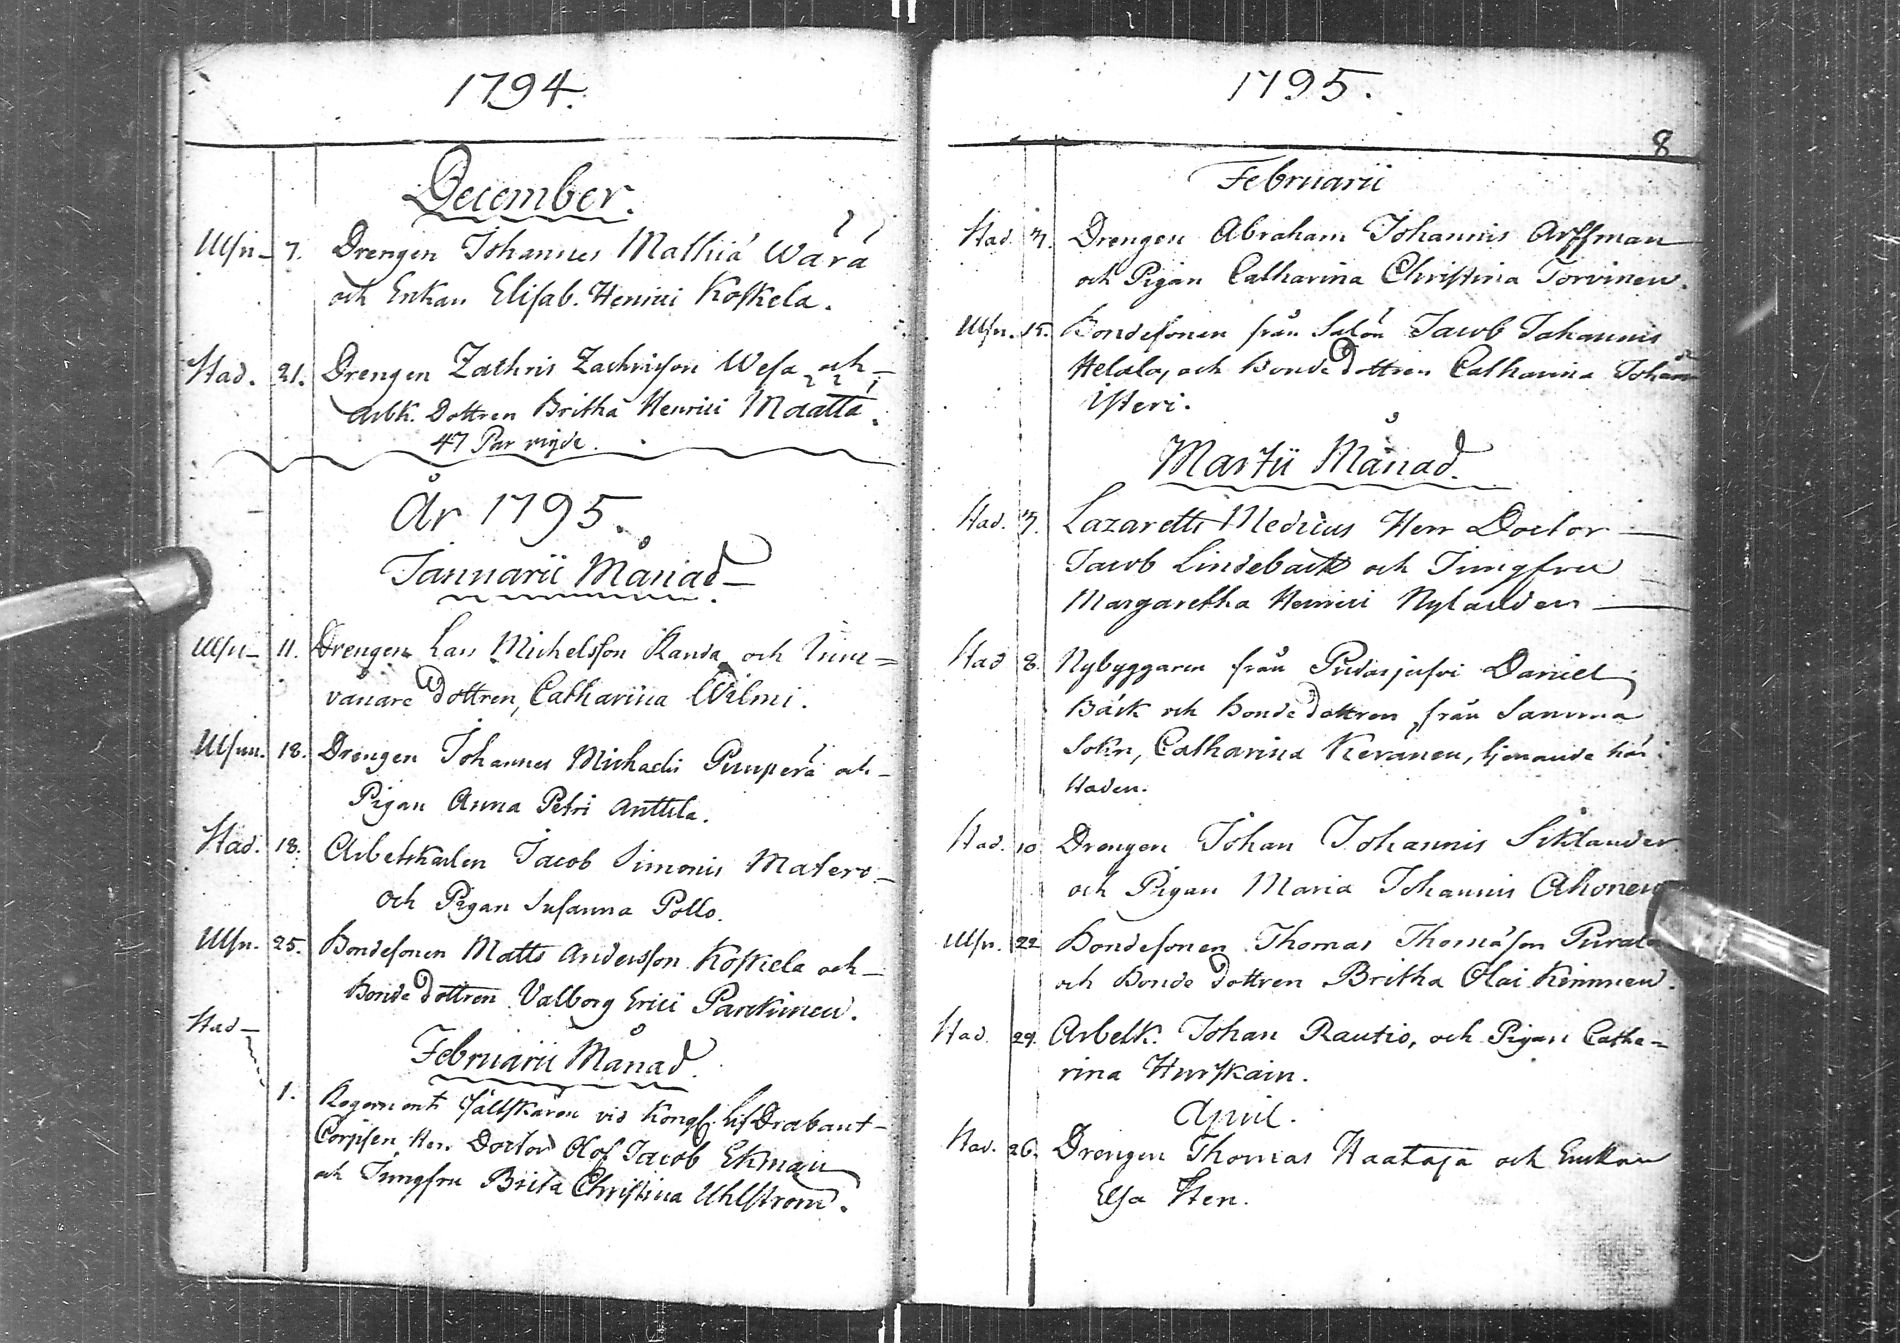 1794.
December.
Ulfn - 7. Drengen Johannes Mathiæ Wärä
och Enkan Elisab. Henrici Koskela.
Stad. 21. Drengen Zachris Zachrisson Wesa och
Arbk. Dottren Britha Henrici Määttä.
47 Par vigde.
År 1795.
Januarii Månad
Ulfn - 11. Drengen Lars Michelsson Kanda och Inne=
vånare Dottren, Catharina Wilmi.
Ulfn. 18. Drengen Johannes Michaelis Pumperä och
Pigan Anna Petri Anttila.
Stad. 18. Arbetskarlen Jacob Simonis Matero
och Pigan Susanna Pollo.
Ulfn. 25. Bondesonen Matts Andersson Koskela och
Bonde Dottren Valborg Erici Parckinen.
Stad -
Februarii Månad.
1. Regements Fältskären vid Kongl. Lif Drabant-
Corpsen Herr Doctor Olof Jacob Ekman
och Jungfru Brita Christina Uhlström.
1795.
8
Februarii
Stad. 3. Drengen Abraham Johannis Arffman
och Pigan Catharina Christina Torvinen.
Ulfn. 15. Bondesonen från Salon Jacob Johannis
Helala, och Bonde Dottren Catharina Johan
isteri.
Martii Månad.
Stad. 3. Lazaretts Medicus Herr Doctor
Jacob Lindebäck och Jungfru
Margaretha Henrici Nylander
Stad 8. Nybyggaren från Pudasjerfvi Daniel
Bäck och Bonde Dottren från Samma
Sokn, Catharina Keränen, tjenande här i
Staden.
Stad. 10 Drengen Johan Johannis Siklander
och Pigan Maria Johannis Ahonen
Ulfn. 22 Bondesonen Thomas Thomæson Purala
och Bonde Dottren Britha Olai Kinnunen.
Stad. 29. Arbetk. Johan Rautio, och Pigan Catha=
rina Hurskain.
April.
Stad. 26. Drengen Thomas Haataja och Enkan
Elsa Sten.